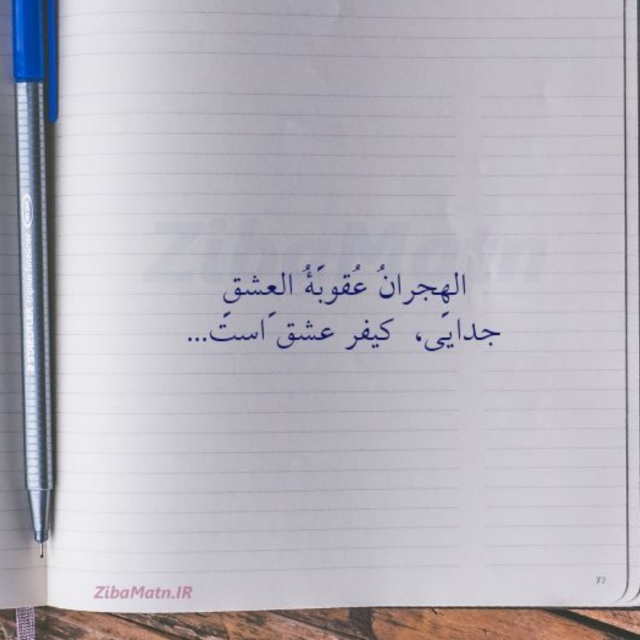 ZibaMatn
الهِجرانُ عُقوبَةُ العِشقِ
جدایی، کیفر عشق است...
ZibaMatn.IR